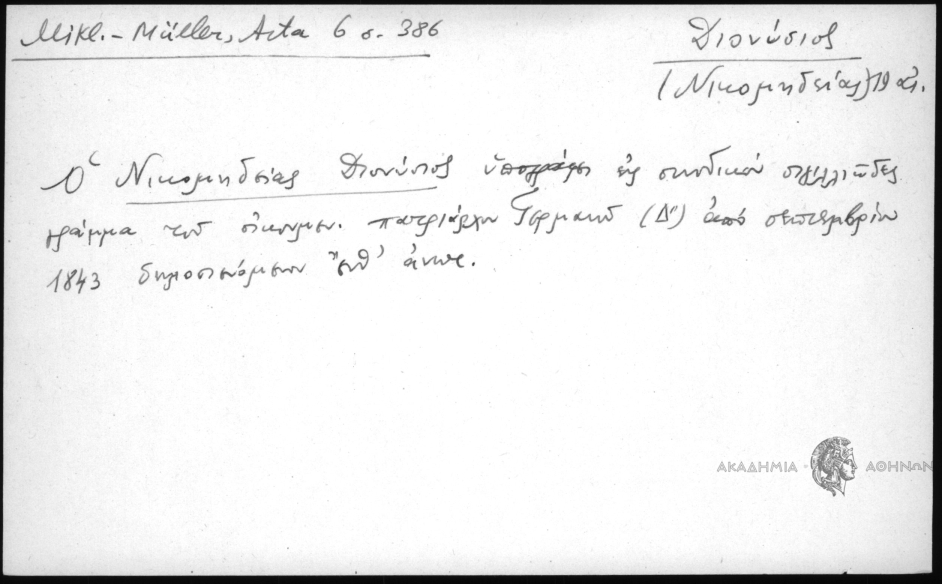 Mikl.-Müller, Acta 6 σ. 386
Διονύσιος
(Νικομηδείας) 19 αἰ.
Ὁ Νικομηδείας Διονύσιος ὑπογράφει εἰς συνοδικὸν σιγιλλιῶδες
γράμμα τοῦ οἰκουμεν. πατριάρχου Γερμανοῦ (Δ') ἀπὸ σεπτεμβρίου
1843 δημοσιευόμενον ἔνθ' ἀνωτ.
ΑΚΑΔΗΜΙΑ ΑΘΗΝΩΝ